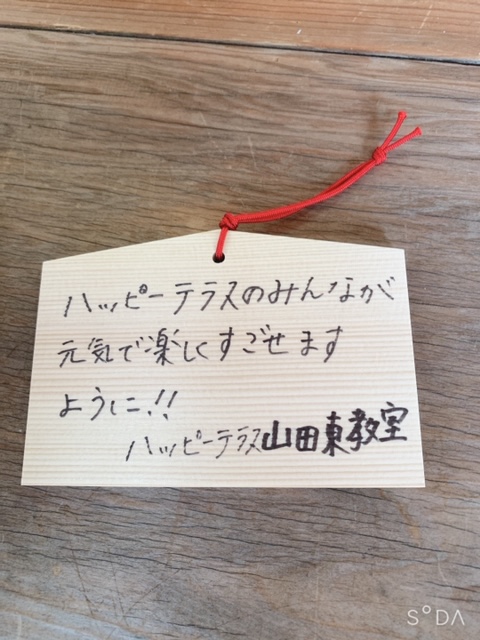 ハッピーテラスのみんなが
元気で楽しくすごせます
ように!!
ハッピーテラス山田東教室
SODA